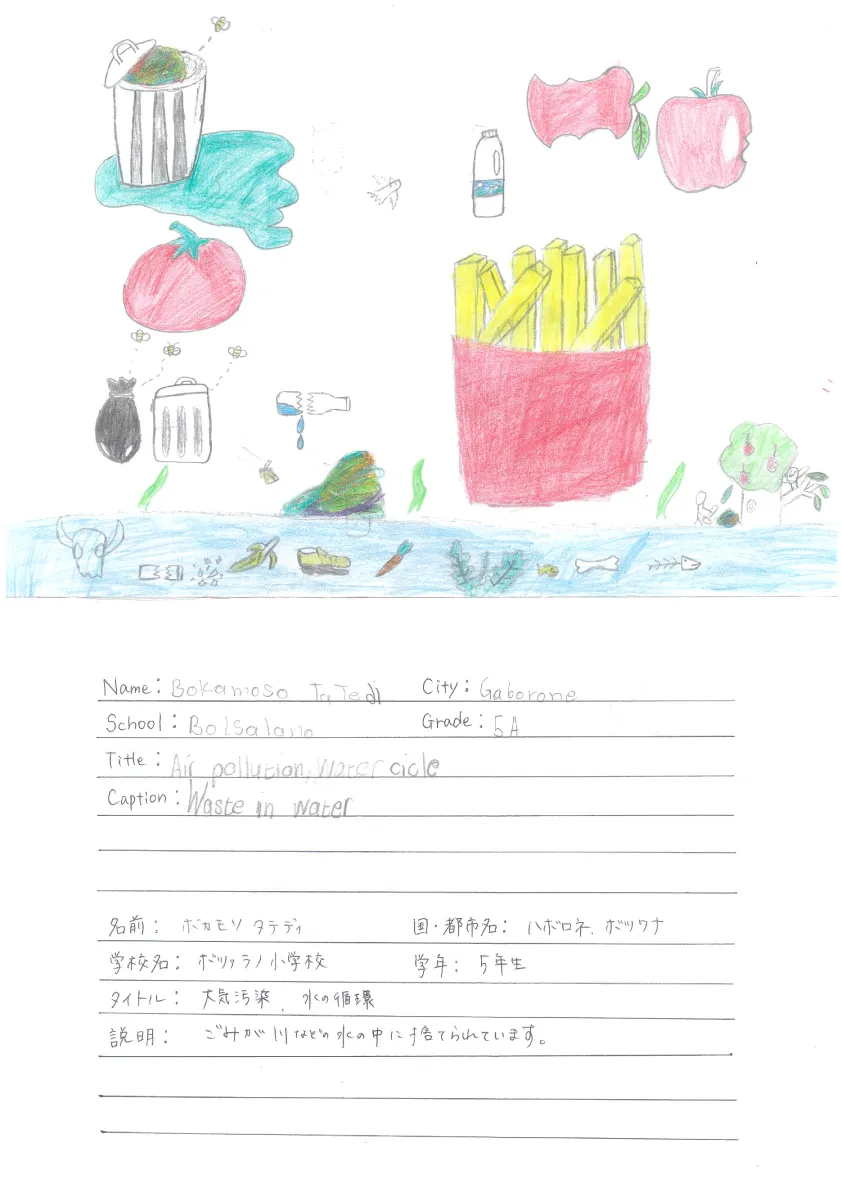 Name: Bokamoso Tatedi City: Gaborone
School: Bolsalano Grade: 5A
Title: Air pollution, Water cicle
Caption: Waste in water
名前: ボカモソ タテディ 国・都市名: ハボロネ、ボツワナ
学校名: ボツァラノ小学校 学年: 5年生
タイトル: 大気汚染、水の循環
説明: ごみが川などの水の中に捨てられています。